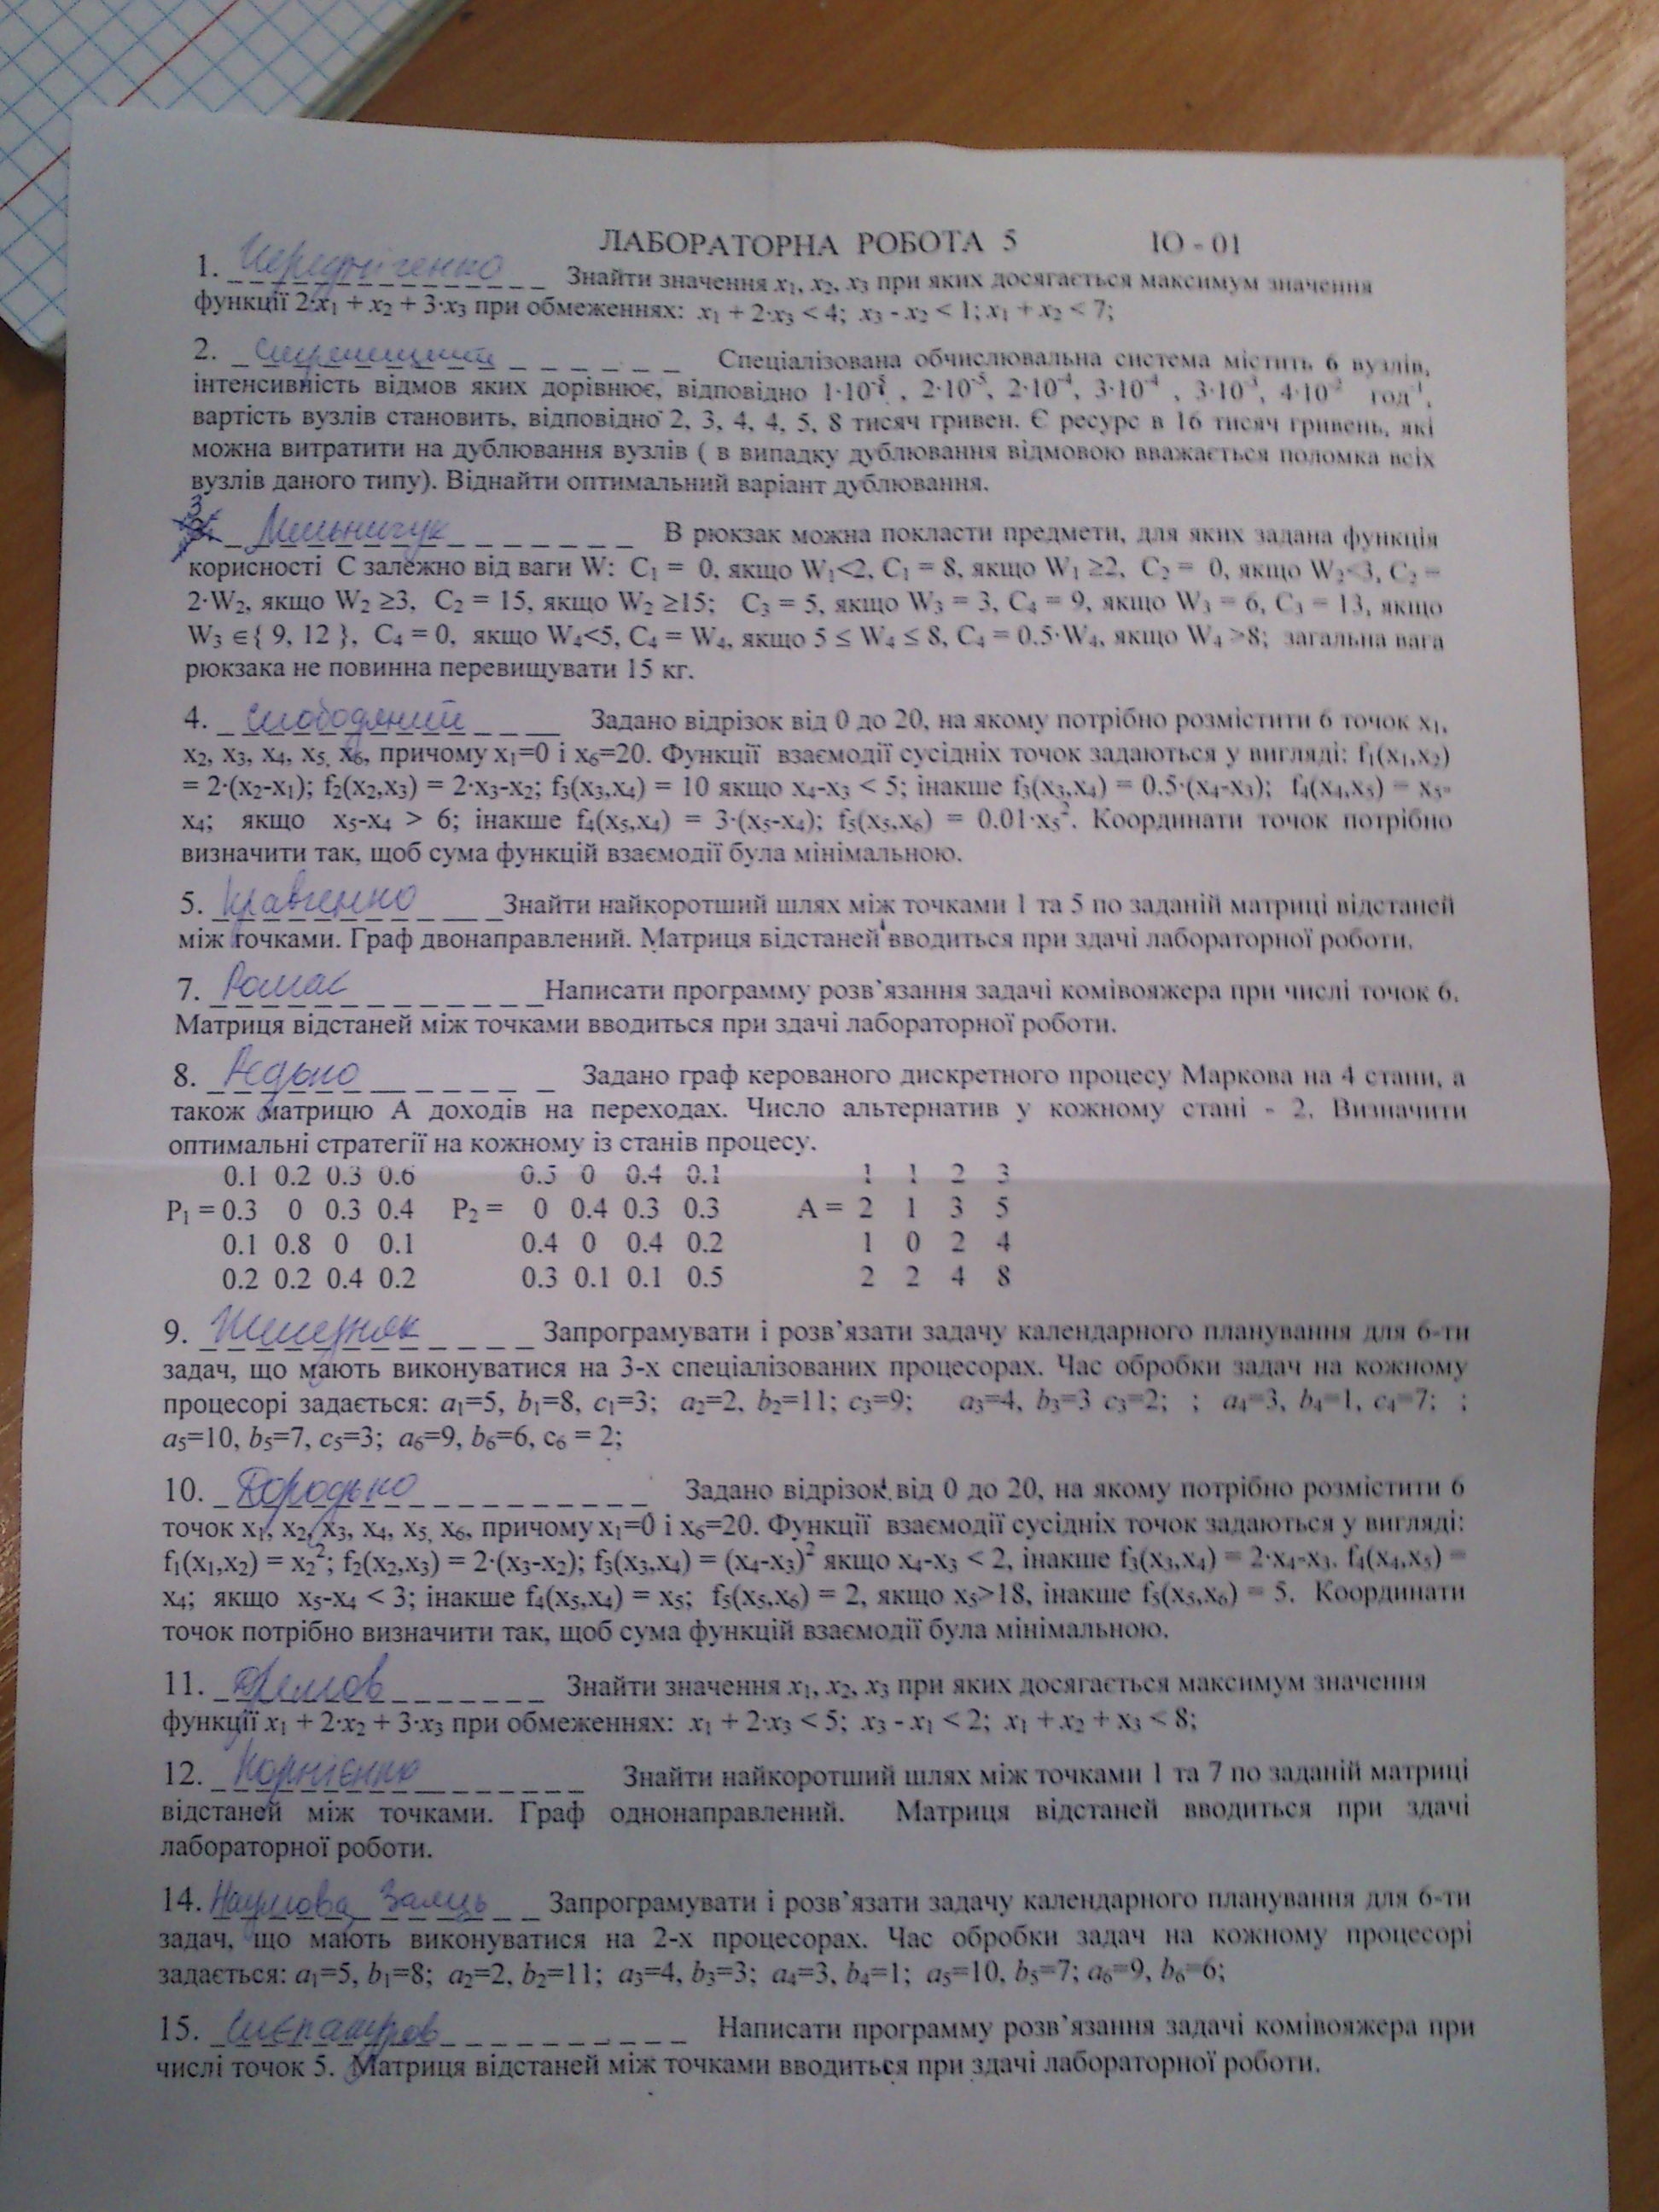 ЛАБОРАТОРНА РОБОТА 5 ІО - 01
1. Чередніченко Знайти значення x₁, x₂, x₃ при яких досягається максимум значення
функції 2·x₁ + x₂ + 3·x₃ при обмеженнях: x₁ + 2·x₃ < 4; x₃ - x₂ < 1; x₁ + x₂ < 7;
2. Спеціалізована обчислювальна система містить 6 вузлів,
інтенсивність відмов яких дорівнює, відповідно 2·10⁻⁵, 2·10⁻⁴, 3·10⁻⁴ , год⁻¹,
вартість вузлів становить, відповідно 2, 3, 4, 4, 5, 8 тисяч гривен. Є ресурс в 16 тисяч гривень, які
можна витратити на дублювання вузлів ( в випадку дублювання відмовою вважається поломка всіх
вузлів даного типу). Віднайти оптимальний варіант дублювання.
3. Мельничук В рюкзак можна покласти предмети, для яких задана функція
корисності С залежно від ваги W: C₁ = 0, якщо W₁<2, C₁ = 8, якщо W₁ ≥2, C₂ = 0, якщо W₂<3, C₂ =
2·W₂, якщо W₂ ≥3, C₂ = 15, якщо W₂ ≥15; C₃ = 5, якщо W₃ = 3, C₄ = 9, якщо W₃ = 6, C₃ = 13, якщо
W₃ ∈{ 9, 12 }, C₄ = 0, якщо W₄<5, C₄ = W₄, якщо 5 ≤ W₄ ≤ 8, C₄ = 0.5·W₄, якщо W₄ >8; загальна вага
рюкзака не повинна перевищувати 15 кг.
4. Слободяний Задано відрізок від 0 до 20, на якому потрібно розмістити 6 точок x₁,
x₂, x₃, x₄, x₅, x₆, причому x₁=0 і x₆=20. Функції взаємодії сусідніх точок задаються у вигляді: f₁(x₁,x₂)
= 2·(x₂-x₁); f₂(x₂,x₃) = 2·x₃-x₂; f₃(x₃,x₄) = 10 якщо x₄-x₃ < 5; інакше f₃(x₃,x₄) = 0.5·(x₄-x₃); f₄(x₄,x₅) = x₅-
x₄; якщо x₅-x₄ > 6; інакше f₄(x₅,x₄) = 3·(x₅-x₄); f₅(x₅,x₆) = 0.01·x₅². Координати точок потрібно
визначити так, щоб сума функцій взаємодії була мінімальною.
5. Кравченко Знайти найкоротший шлях між точками 1 та 5 по заданій матриці відстаней
між точками. Граф двонаправлений. Матриця відстаней вводиться при здачі лабораторної роботи.
7. Ромас Написати программу розв’язання задачі комівояжера при числі точок 6.
Матриця відстаней між точками вводиться при здачі лабораторної роботи.
8. Редько Задано граф керованого дискретного процесу Маркова на 4 стани, а
також матрицю А доходів на переходах. Число альтернатив у кожному стані - 2. Визначити
оптимальні стратегії на кожному із станів процесу.
0.1 0.2 0.3 0.6 0.5 0 0.4 0.1 1 1 2 3
P₁ = 0.3 0 0.3 0.4 P₂ = 0 0.4 0.3 0.3 A = 2 1 3 5
0.1 0.8 0 0.1 0.4 0 0.4 0.2 1 0 2 4
0.2 0.2 0.4 0.2 0.3 0.1 0.1 0.5 2 2 4 8
9. Запрограмувати і розв’язати задачу календарного планування для 6-ти
задач, що мають виконуватися на 3-х спеціалізованих процесорах. Час обробки задач на кожному
процесорі задається: a₁=5, b₁=8, c₁=3; a₂=2, b₂=11; c₃=9; a₃=4, b₃=3 c₃=2; ; a₄=3, b₄=1, c₄=7; ;
a₅=10, b₅=7, c₅=3; a₆=9, b₆=6, c₆ = 2;
10. Бородько Задано відрізок від 0 до 20, на якому потрібно розмістити 6
точок x₁, x₂, x₃, x₄, x₅, x₆, причому x₁=0 і x₆=20. Функції взаємодії сусідніх точок задаються у вигляді:
f₁(x₁,x₂) = x₂²; f₂(x₂,x₃) = 2·(x₃-x₂); f₃(x₃,x₄) = (x₄-x₃)² якщо x₄-x₃ < 2, інакше f₃(x₃,x₄) = 2·x₄-x₃. f₄(x₄,x₅) =
x₄; якщо x₅-x₄ < 3; інакше f₄(x₅,x₄) = x₅; f₅(x₅,x₆) = 2, якщо x₅>18, інакше f₅(x₅,x₆) = 5. Координати
точок потрібно визначити так, щоб сума функцій взаємодії була мінімальною.
11. Знайти значення x₁, x₂, x₃ при яких досягається максимум значення
функції x₁ + 2·x₂ + 3·x₃ при обмеженнях: x₁ + 2·x₃ < 5; x₃ - x₁ < 2; x₁ + x₂ + x₃ < 8;
12. Корнієнко Знайти найкоротший шлях між точками 1 та 7 по заданій матриці
відстаней між точками. Граф однонаправлений. Матриця відстаней вводиться при здачі
лабораторної роботи.
14. Наумова Заяць Запрограмувати і розв’язати задачу календарного планування для 6-ти
задач, що мають виконуватися на 2-х процесорах. Час обробки задач на кожному процесорі
задається: a₁=5, b₁=8; a₂=2, b₂=11; a₃=4, b₃=3; a₄=3, b₄=1; a₅=10, b₅=7; a₆=9, b₆=6;
15. Написати программу розв’язання задачі комівояжера при
числі точок 5. Матриця відстаней між точками вводиться при здачі лабораторної роботи.